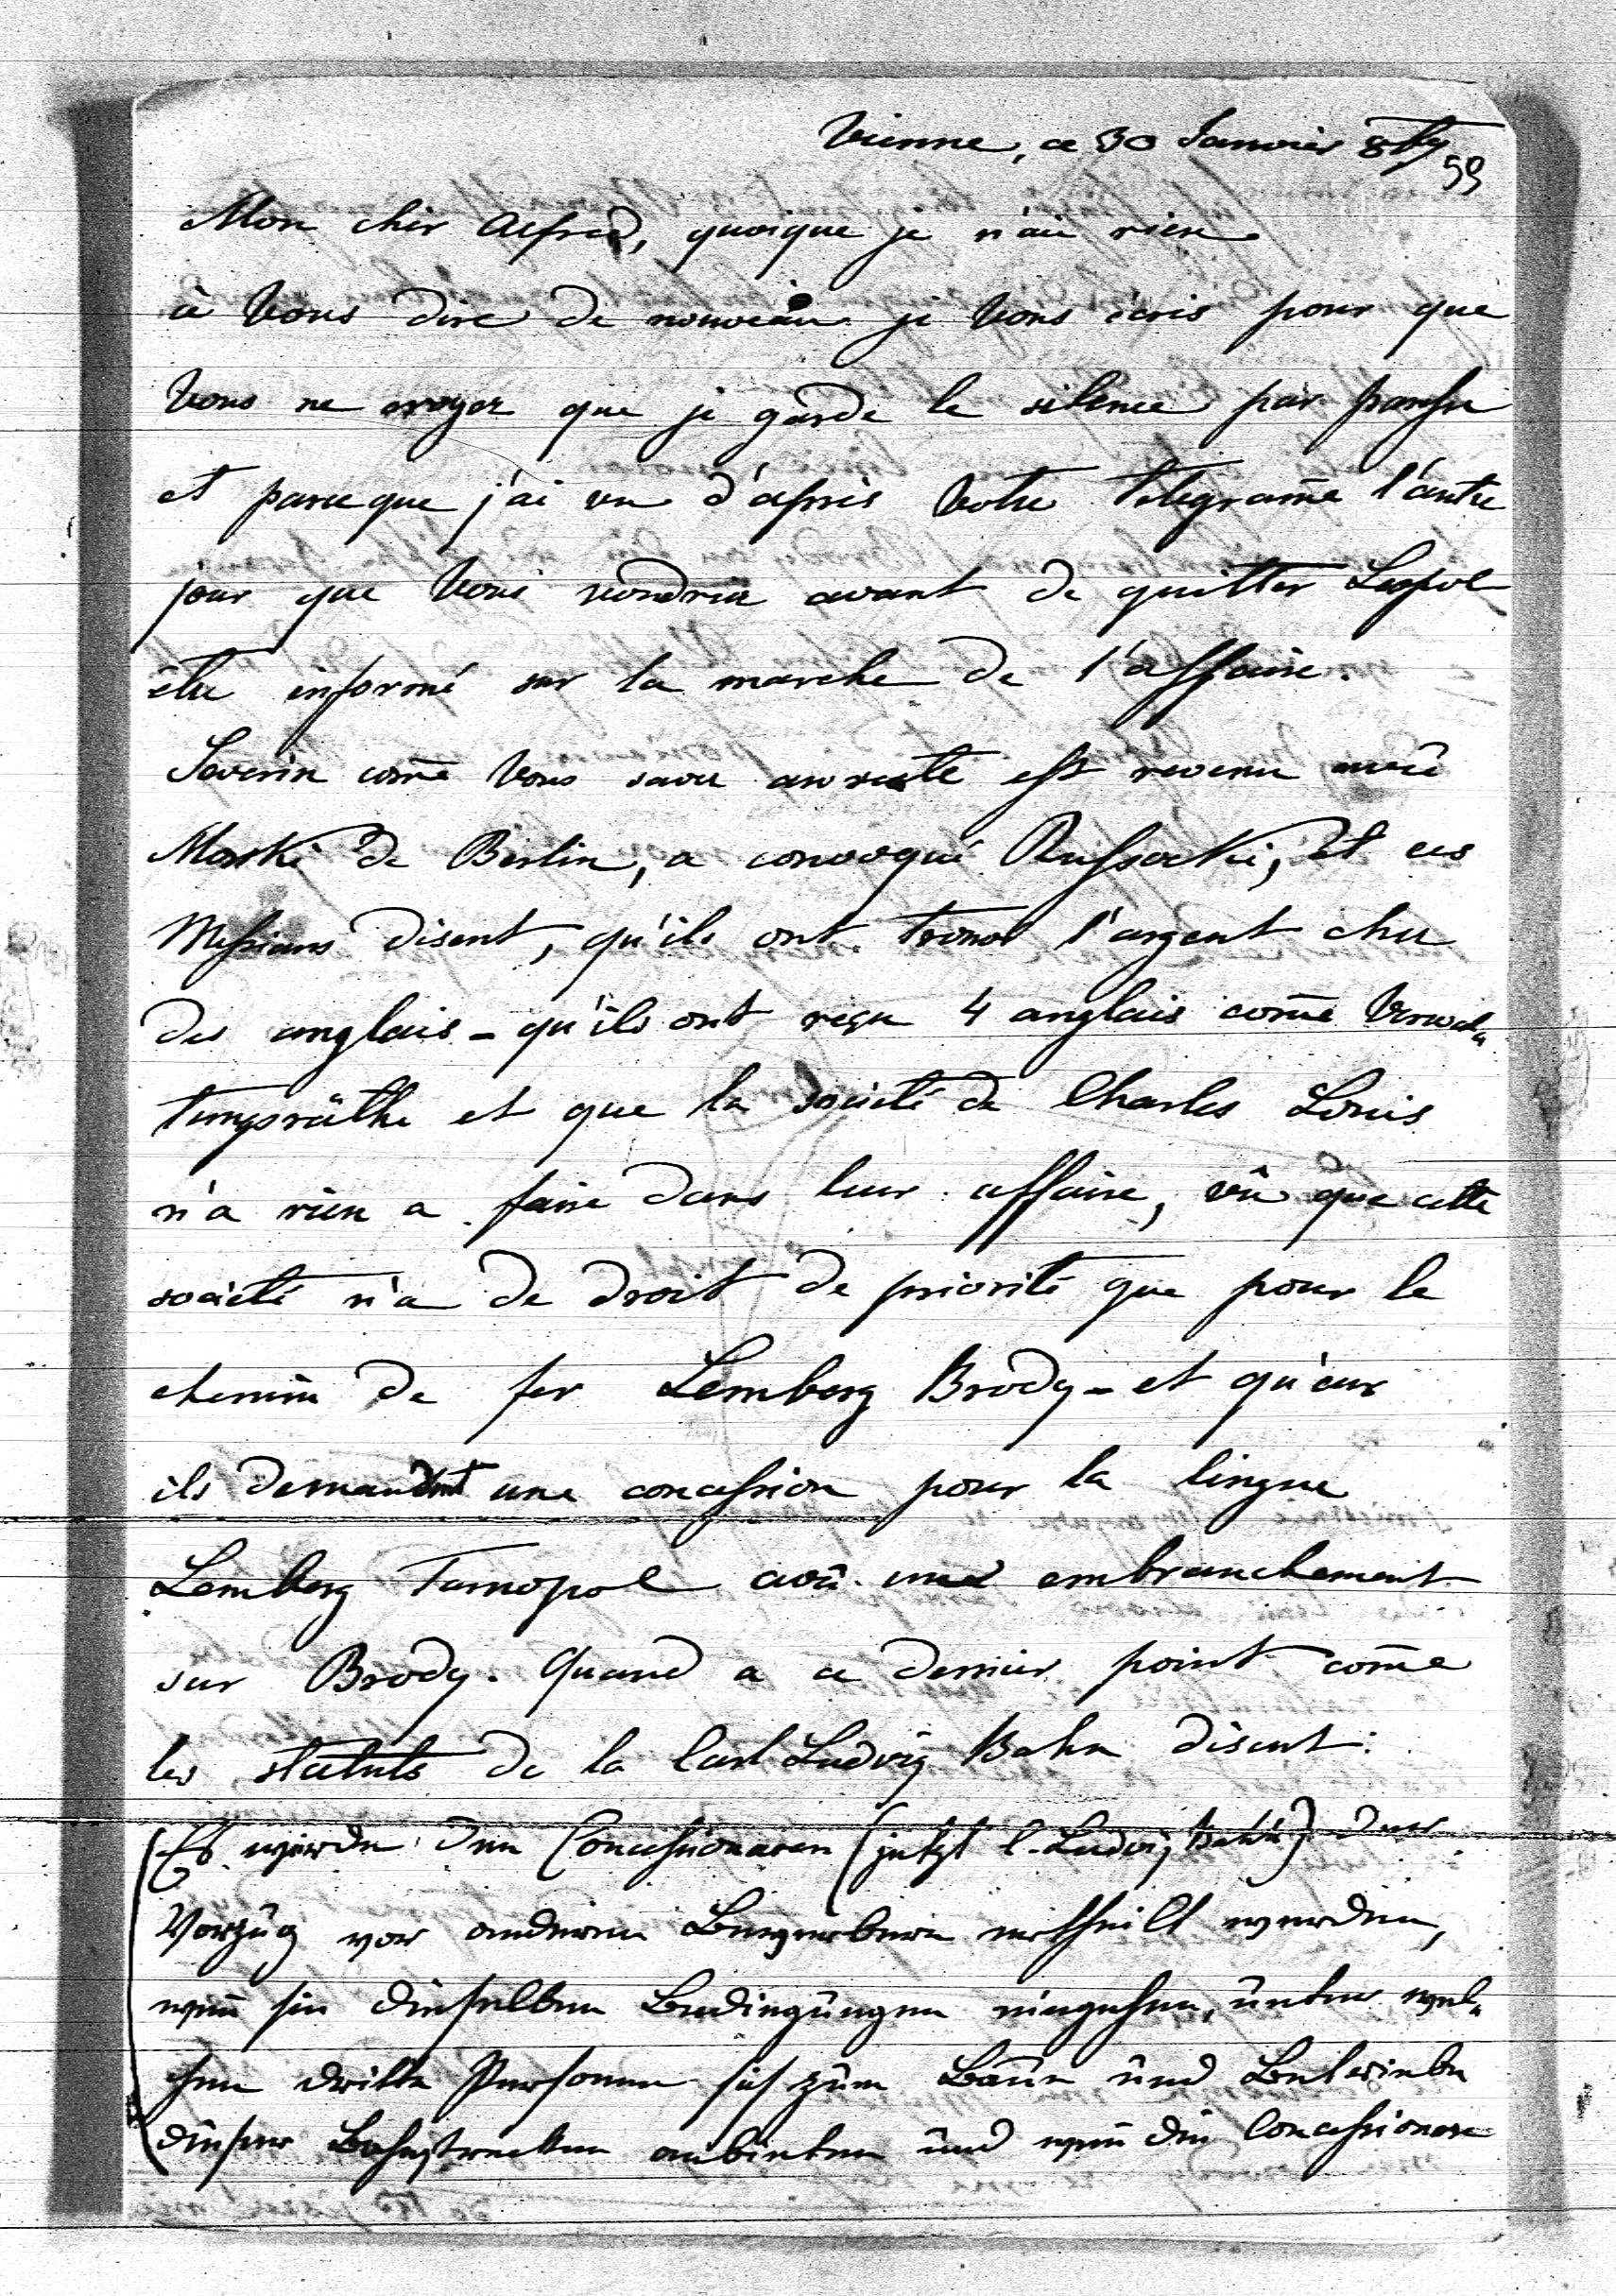 Vienne, ce 30 Janvier
59
Mon cher Alfred, quoique je n'ai rien
à Vous dire de nouveau je Vous écris pour que
Vous ne croyez que je garde le silence par
et parceque j'ai vu d'après Votre telegram̄e l'autre
jour que Vous voudriez avant de quitter Leopol
être informé sur la marche de l'affaire.
Severin com̄e Vous savez est revenu avec
Morski de Berlin, a convoqué Russocki, et ces
Messieurs disent, qu'ils ont trouvé l'argent chez
des anglais - qu'ils ont reçu 4 anglais com̄e Verwal-
tungsräthe et que la société de Charles Louis
n'a rien a faire dans leur affaire, vû que cette
société n'a de droit de priorité que pour le
chemin de fer Lemberg Brody - et qu'eux
ils demandent une concession pour la lingne
Lemberg Tarnopol avec une embranchement
sur Brody. Quand a ce dernier point com̄e
les statuts de la Carl Ludvig Bahn disent:
(Es werde den Concessionaren (jetzt C. Ludvig Bahn) der
Vorzug vor anderen Bewerbern ertheilt werden,
wen̄ sie dieselben Bedingungen eingehen, unter wel-
chen dritte Personen sich zum Baue und Betriebe
dieser Bahnstrecken anbieten und wen̄ die Concessionare